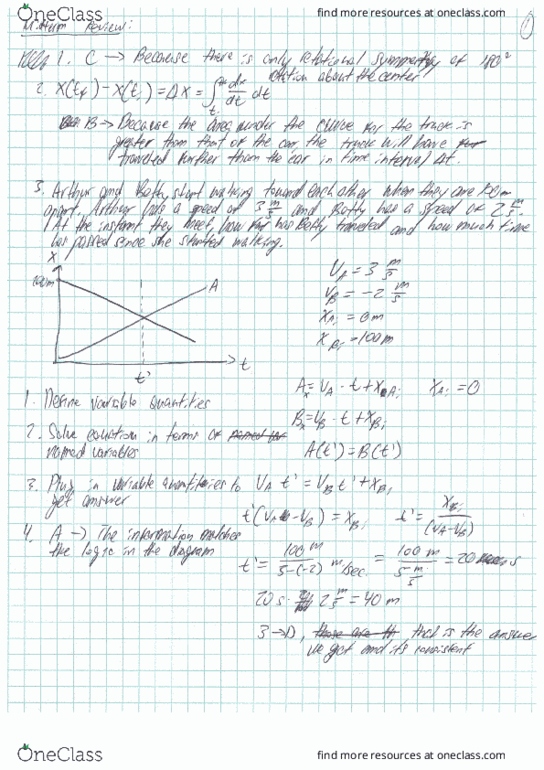 OneClass
find more resources at oneclass.com
Midterm Review:
1
1. C → Because there is only rotational symmetry of 180°
rotation about the center
2. x(tf) - x(ti) = Δx = ∫ dx/dt dt
B → Because the area under the curve for the truck is
greater than that of the car, the truck will have
traveled further than the car in time interval Δt.
3. Arthur and Betty start walking toward each other when they are 100m
apart. Arthur has a speed of 3 m/s and Betty has a speed of 2 m/s.
At the instant they meet, how far has Betty traveled and how much time
has passed since she started walking.
x
100m
A
t'
t
VA = 3 m/s
VB = -2 m/s
XAi = 0m
XBi = 100m
1. Define variable quantities
Ax = VA · t + XAi XAi = 0
Bx = VB · t + XBi
2. Solve equation in terms of
named variables
A(t') = B(t')
3. Plug in variable quantities to
get answer
VA t' = VB t' + XBi
t'(VA - VB) = XBi t' = XBi/(VA-VB)
4. A → The information matches
the logic in the diagram
t' = 100 m/3-(-2) m/sec. = 100 m/5 m/s = 20 s
20 s · 2 m/s = 40 m
3 → D, that is the answer
we got and its consistent
OneClass
find more resources at oneclass.com